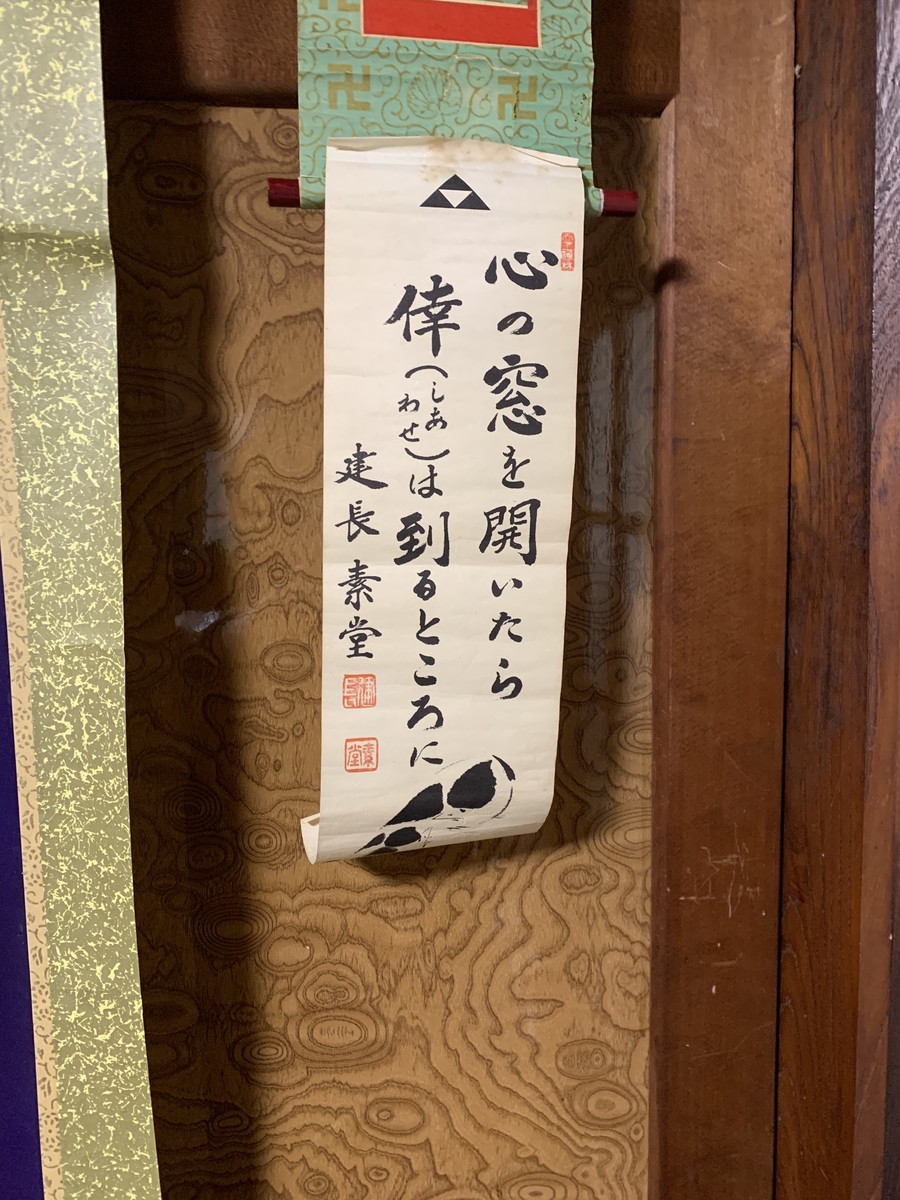 心の窓を開いたら
倖(しあわせ)は到るところに
建長 素堂
卍 卍